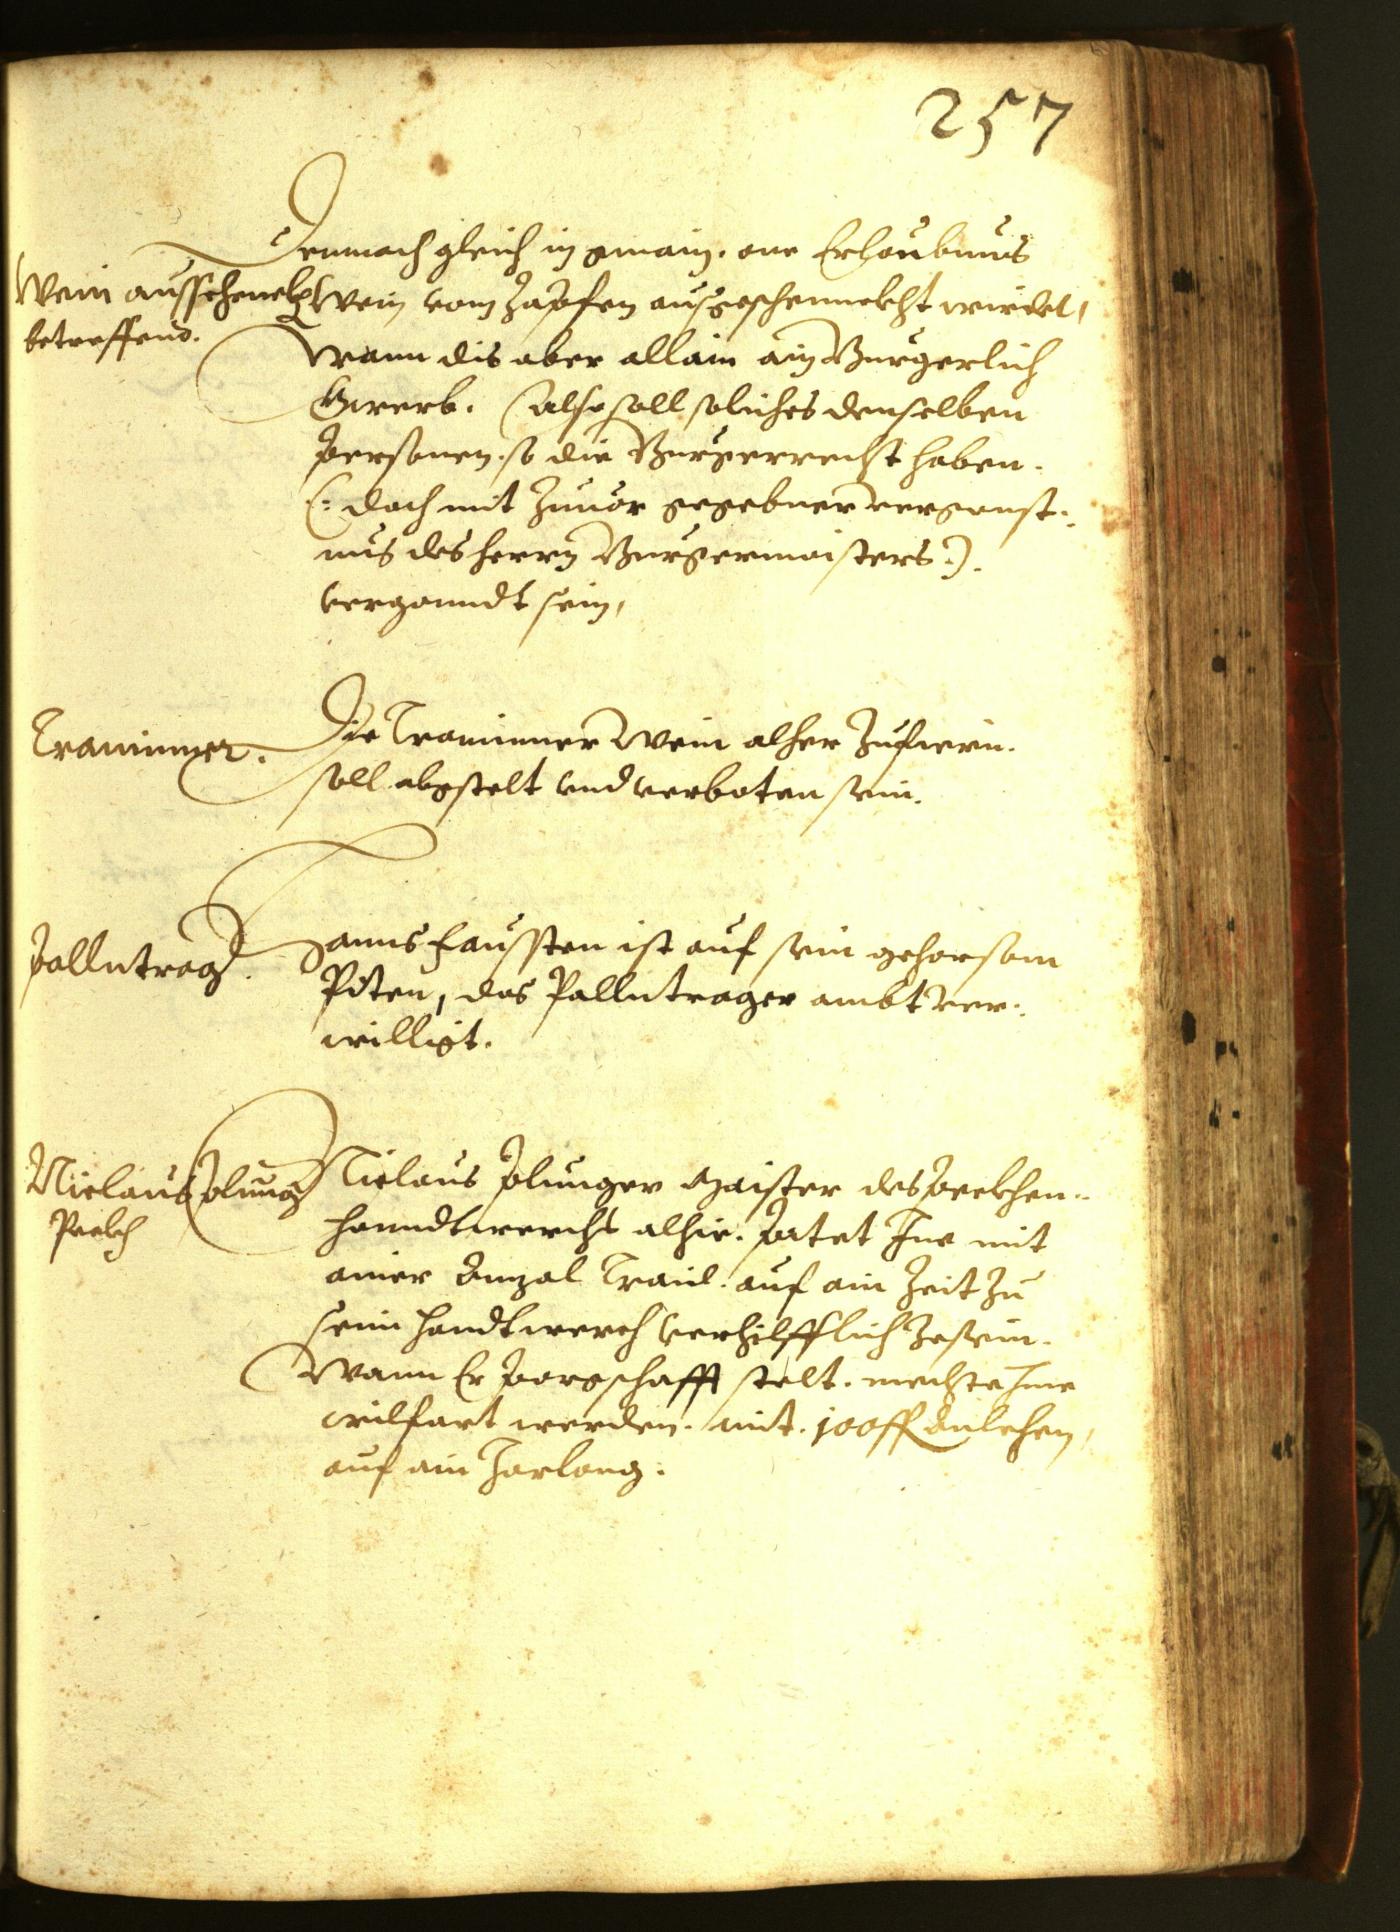 257
Wein ausschenckhen
betreffend.
Demnach gleich in gmain. one Erlaubnus
Wein vom Zapfen ausgeschennckht wirdet,
Wann dis aber allain ain Burgerlich
Gwerb. Also soll soliches denselben
Personen. so die Burgerrecht haben.
(: doch mit Zuuor gegebner vergonst:
nus des Herrn Burgermaisters :).
vergonndt sein,
Traminner.
Die Traminner Wein alher Zufiern.
soll abgstelt vnd verboten sein.
Pallntrager.
Hanns Faussten ist auf sein gehorsam
Piten, das Pallntrager ambt ver:
willigt.
Niclaus Plunger
Peckh
Niclaus Plunger Maister des Peckhen:
hanndtwerchs alhie. Patet Ine mit
ainer Anzal Traid. auf ain Zeit Zu
seim Handtwerch verhilfflich Zesein.
Wann Er Porgschafft stelt. mechte Ime
wilfart werden. mit. 100 ff Anlehen,
auf ain Jarlang.